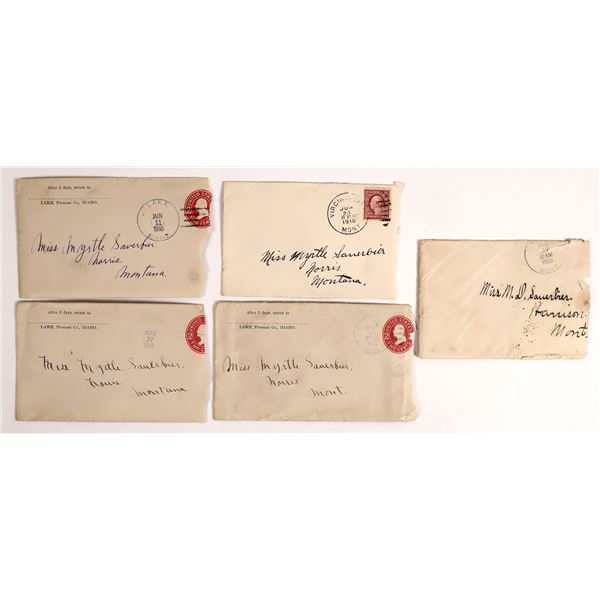 After 2 days, return to
LAKE, Fremont Co., IDAHO.
LAKE
JUN
11
IDAHO
UNITED STATES
Miss Myrtle Sauerbier,
Norris,
Montana.
VIRGINIA CITY
JUN
1910
MONT.
Miss Myrtle Sauerbier
Norris,
Montana.
10 AM
MONT.
Miss M. D. Sauerbier,
Harrison,
Mont.
After 2 days, return to
LAKE, Fremont Co., IDAHO.
MAY
UNITED STATES
Miss Myrtle Sauerbier,
Norris,
Montana
After 2 days, return to
LAKE, Fremont Co., IDAHO.
UNITED STATES
Miss Myrtle Sauerbier,
Norris
Mont.